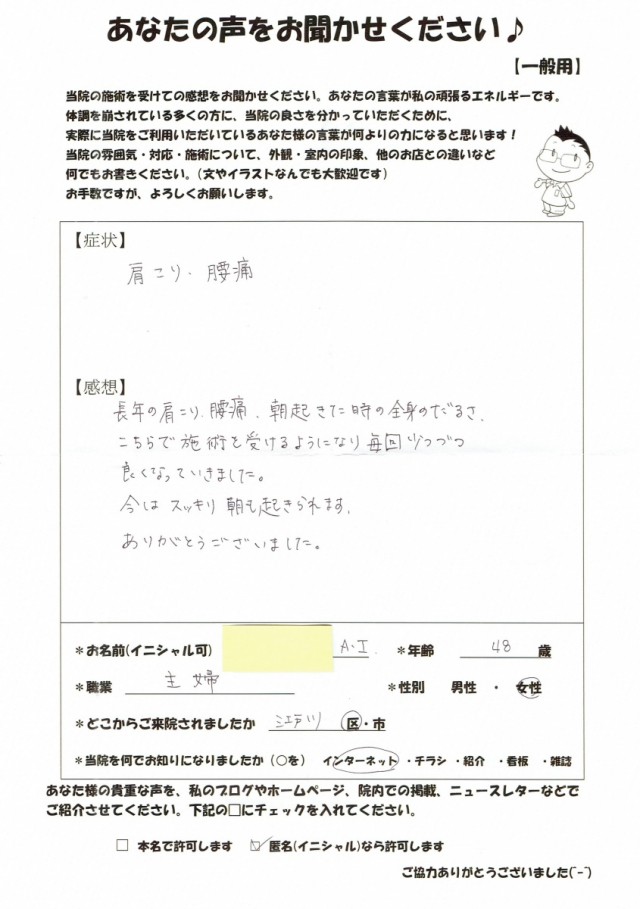 あなたの声をお聞かせください♪
【一般用】
当院の施術を受けての感想をお聞かせください。あなたの言葉が私の頑張るエネルギーです。
体調を崩されている多くの方に、当院の良さを分かっていただくために、
実際に当院をご利用いただいているあなた様の言葉が何よりの力になると思います！
当院の雰囲気・対応・施術について、外観・室内の印象、他のお店との違いなど
何でもお書きください。（文やイラストなんでも大歓迎です）
お手数ですが、よろしくお願いします。
【症状】
肩こり、腰痛
【感想】
長年の肩こり、腰痛、朝起きた時の全身のだるさ、
こちらで施術を受けるようになり毎回少しづつ
良くなっていきました。
今は スッキリ 朝も起きられます。
ありがとうございました。
＊お名前(イニシャル可) A・I ＊年齢 48 歳
＊職業 主婦 ＊性別 男性 ・ 女性
＊どこからご来院されましたか 江戸川 区・市
＊当院を何でお知りになりましたか（○を） インターネット ・チラシ ・紹介 ・看板 ・雑誌
あなた様の貴重な声を、私のブログやホームページ、院内での掲載、ニュースレターなどで
ご紹介させてください。下記の□にチェックを入れてください。
□ 本名で許可します ☑ 匿名(イニシャル)なら許可します
ご協力ありがとうございました(^-^)